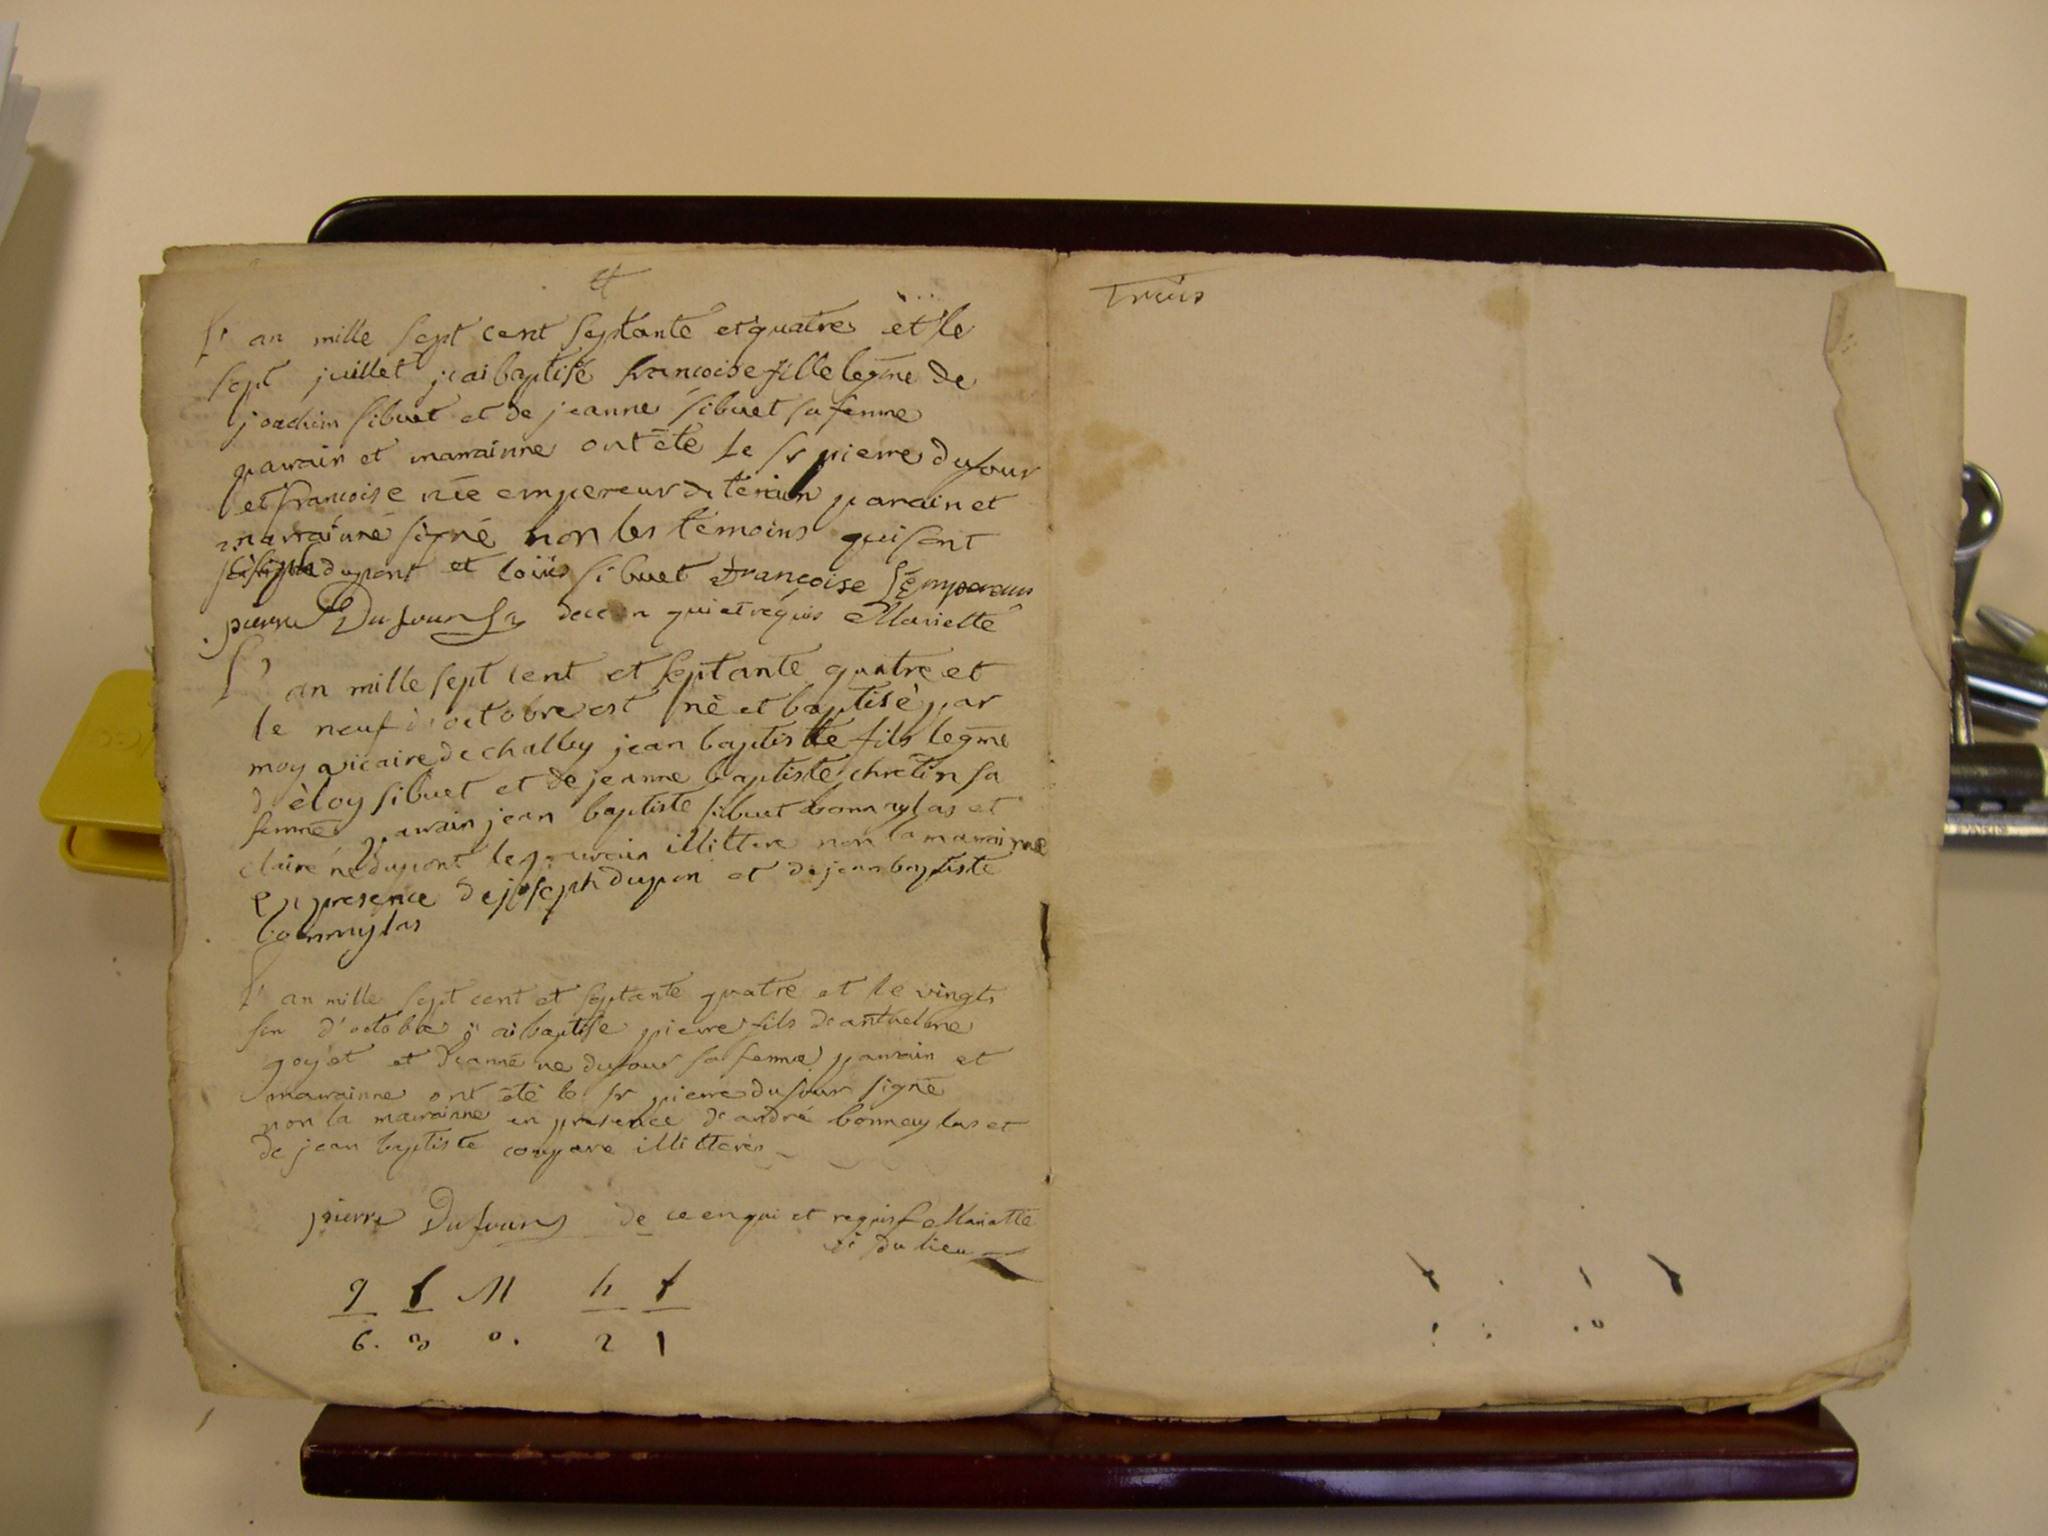 L' an mille sept cent septante et quatre et le
sept juillet j'ai baptisé francoise fille legme de
joachim sibuet et de jeanne sibuet sa femme
parrain et marrainne ont été le sr pierre dufour
et francoise née empereur de parain et
marrainne signé non les témoins qui sont
dupont et loüis sibuet francoise Lempereur
pierre Dufour de ce en qui et requis Mariette
L' an mille sept cent et septante quatre et
le neuf octobre est né et baptisé par
moy vicaire de jean baptiste fils legme
d' èloy sibuet et de jeanne baptiste chretin sa
femme parrain jean baptiste sibuet et
claire né dupont le parrain illittere non la marrainne
en presence de joseph dupon et de jean baptiste
L' an mille sept cent et septante quatre et le vingts
d'octobre j' ai baptise pierre fils de anthelme
goyet et ne dufour sa femme parrain et
marrainne ont été le sr pierre dufour signé
non la marrainne en presence de andré et
de jean baptiste compare illitteres
pierre Dufour de ce en qui et requis Mariette
du lieu
9 f M h f
6. 3 0. 2 1
Trois